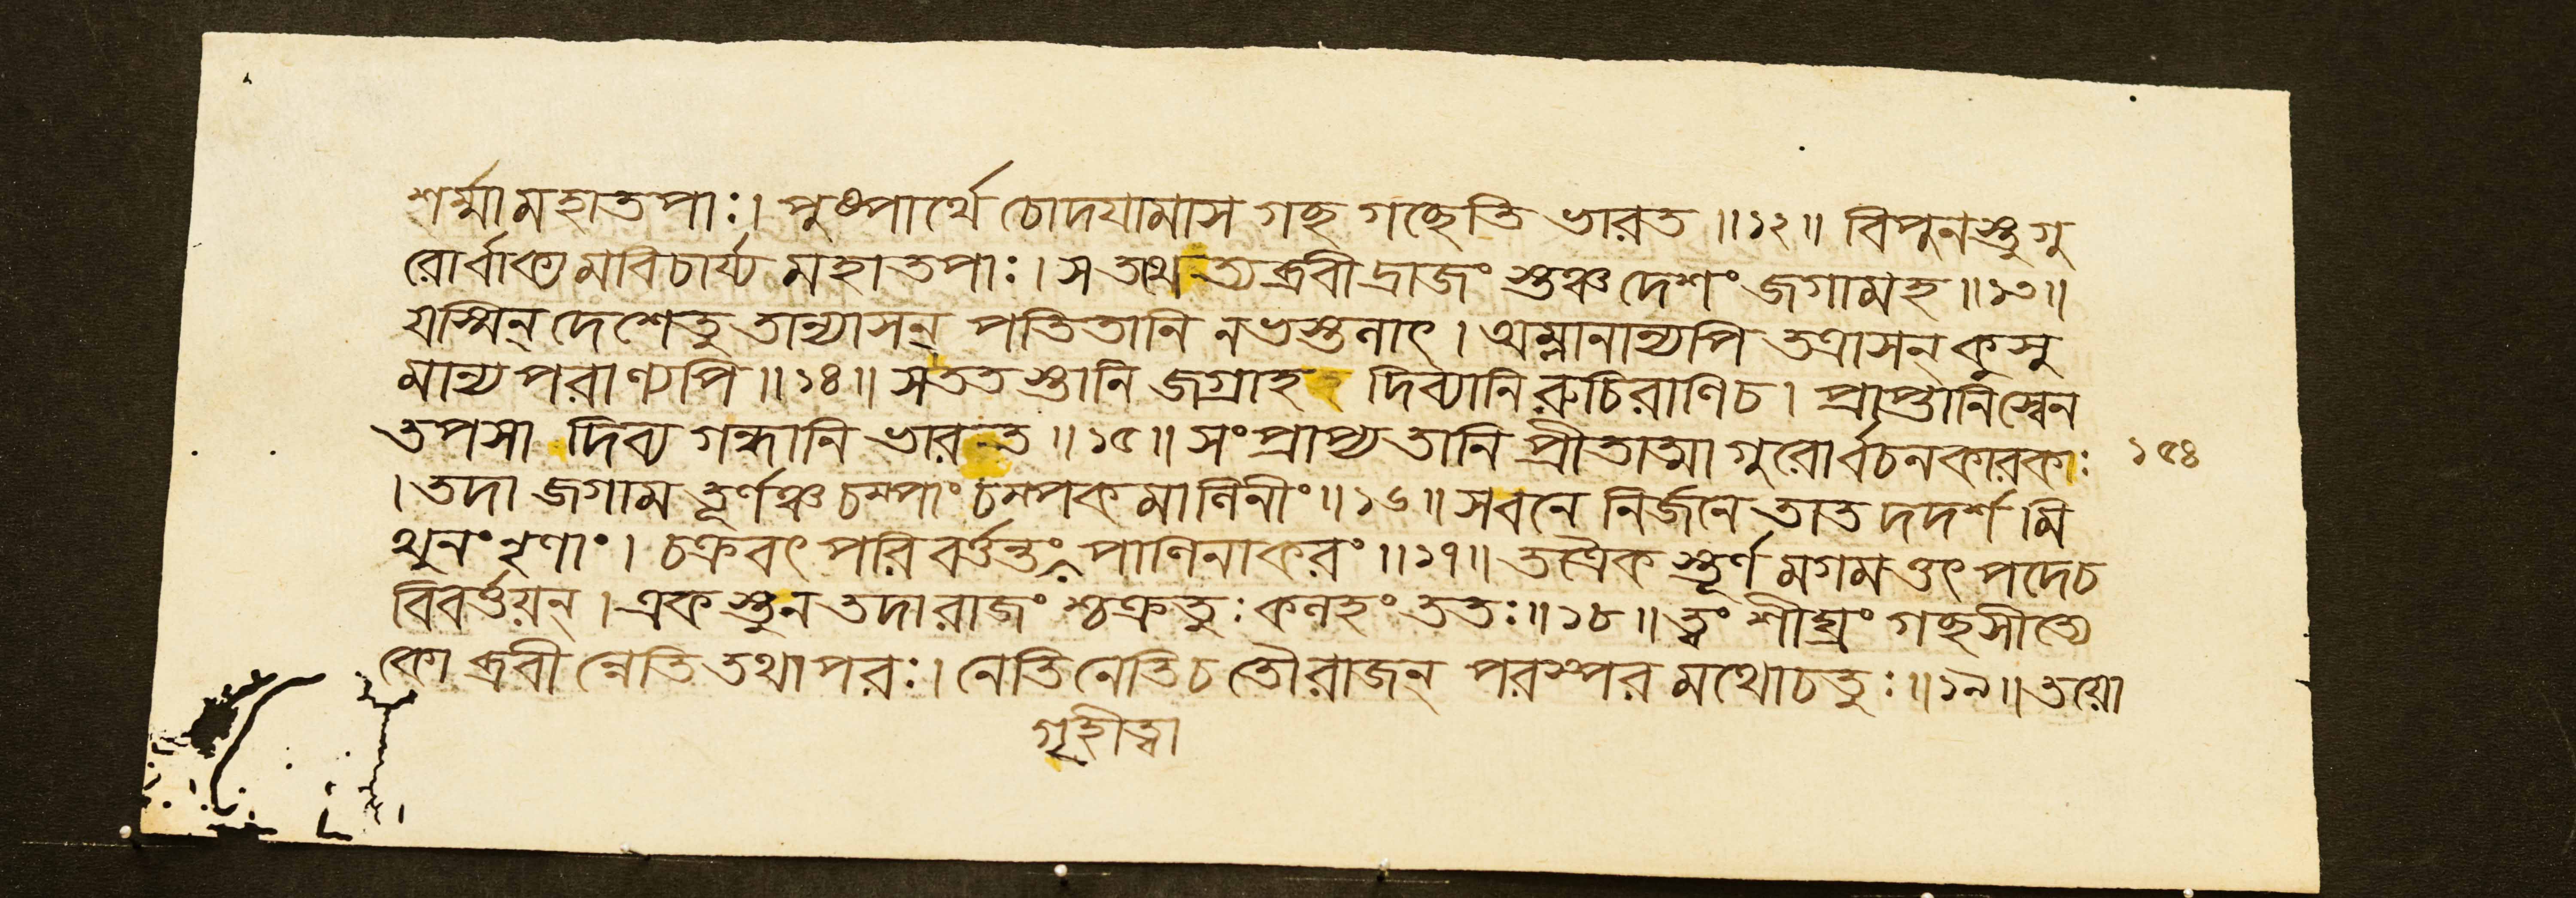 শর্ম্মামহাতপাঃ। পুষ্পার্থে চোদযামাস গচ্ছ গচ্ছেতি ভারত ॥১২॥ বিপুলস্তুগু
রোর্বাক্যমবিচার্য্য মহাতপাঃ। স তথেত্যব্রবীদ্রাজং স্তঞ্চদেশং জগামহ ॥১৩॥
যস্মিন্ দেশেতু তান্যাসন্ পতিতানি নভস্তলাৎ। অম্লানান্যপি তত্রাসন্ কুসু
মান্যপরাণ্যপি ॥১৪॥ সততস্তানি জগ্রাহ দিব্যানি রুচিরাণিচ। প্রাপ্তানিস্বেন
তপসা দিব্য গন্ধানি ভারত ॥১৫॥ সংপ্রাপ্য তানি প্রীতাত্মা গুরোর্বচনকারকঃ
। তদা জগাম তূর্ণঞ্চ চম্পাং চম্পকমালিনীং॥১৬॥ সবনে নির্জনে তাত দদর্শ মি
থুনং নৃণাং। চক্রবৎ পরিবর্ত্তন্তং পাণিনাকরং ॥১৭॥ তত্রৈক স্তূর্ণমগমত্তৎ পদেচ
বিবর্ত্তয়ন্। একস্তুন তদারাজং শ্চক্রতুঃ কলহং ততঃ॥১৮॥ ত্বং শীঘ্রং গচ্ছসীত্যে
কোব্রবীন্নেতি তথাপরঃ। নেতিনেতিচ তৌরাজন্ পরস্পরমথোচতুঃ॥১৯॥ তয়ো
গৃহীত্বা
১৫৪